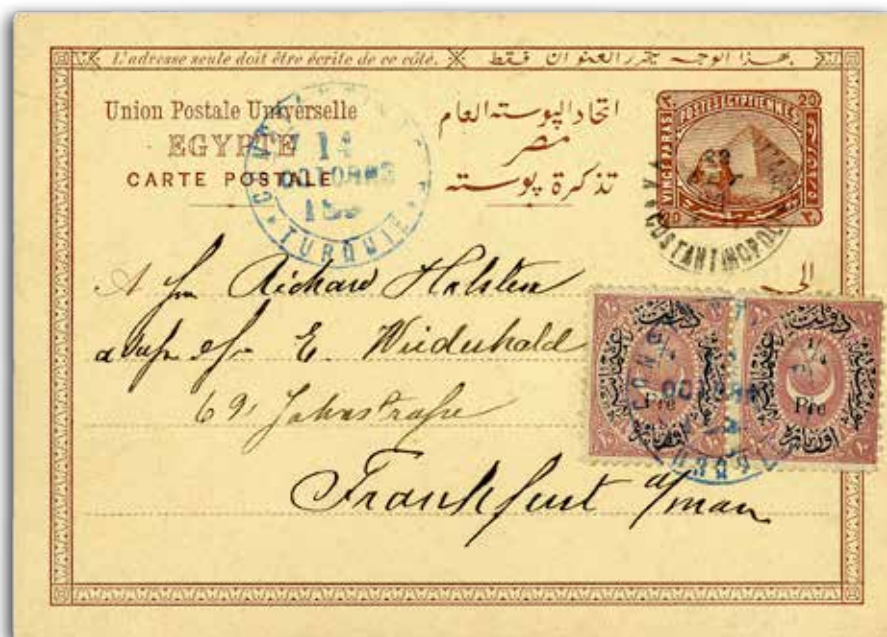 L'adresse seule doit être écrite de ce côté.
بهذا الوجه يحرر العنوان فقط
Union Postale Universelle
EGYPTE
CARTE POSTALE
اتحاد البوسته العام
مصر
تذكرة بوسته
POSTES EGYPTIENNES
VINGT PARAS
20
20
٢٠
٢٠
14
OCTOBRE
TURQUIE
COSTANTINOPOLI
الى
Richard Holsten
E. Wiederhold
69, Jahnstraße
Frankfurt a/main
¼
Pre
¼
Pre
١٠
١٠